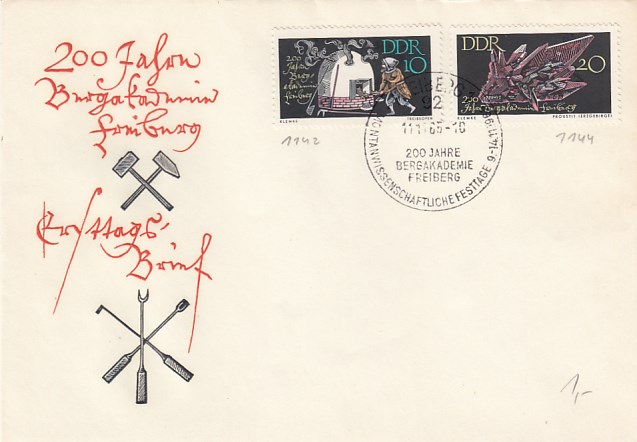 200 Jahre
Bergakademie
Freiberg
Ersttags-
Brief
DDR
10
200
Jahre
Berg-
akademie
Freiberg
KLEMKE
FREIERHOFER
DDR
20
200
Jahre Bergakademie Freiberg
KLEMKE
PROUSTIT (ERZGEBIRGE)
1142
1144
92 FREIBERG
11.11.65-16
200 JAHRE
BERGAKADEMIE
FREIBERG
MONTANWISSENSCHAFTLICHE FESTTAGE 9.-14.11.1965
1,-